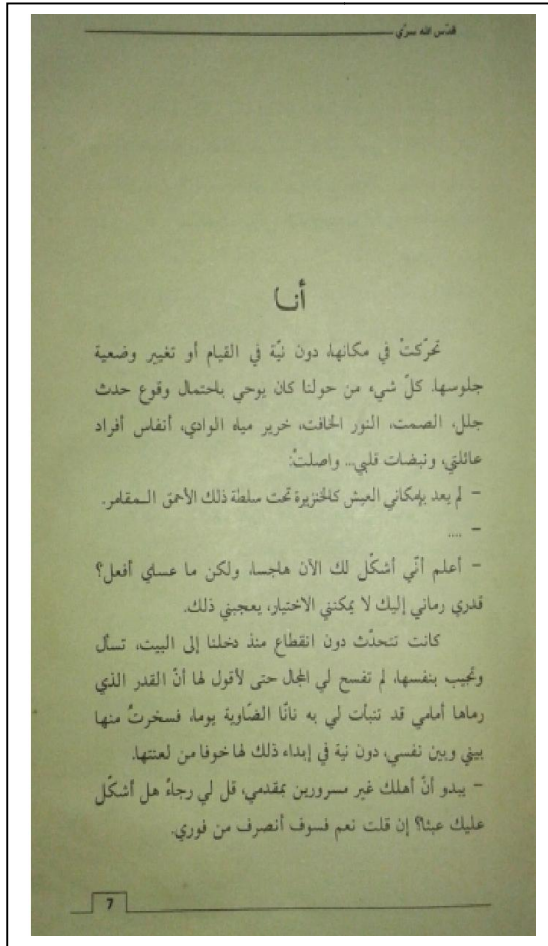 قدّس الله سرّي
أنا
تحرّكتْ في مكانها، دون نيّة في القيام أو تغيير وضعية
جلوسها. كلّ شيء من حولنا كان يوحي باحتمال وقوع حدث
جلل، الصمت، النور الخافت، خرير مياه الوادي، أنفاس أفراد
عائلتي، ونبضات قلبي... واصلتْ:
– لم يعد بإمكاني العيش كالخنزيرة تحت سلطة ذلك الأحمق المقامر.
– ....
– أعلم أنّي أشكّل لك الآن هاجسا، ولكن ما عساي أفعل؟
قدري رماني إليك لا يمكنني الاختيار، يعجبني ذلك.
كانت تتحدّث دون انقطاع منذ دخلنا إلى البيت، تسأل
وتجيب بنفسها، لم تفسح لي المجال حتى لأقول لها أنّ القدر الذي
رماها أمامي قد تنبأت لي به نانّا الضّاوية يوما، فسخرتُ منها
بيني وبين نفسي، دون نية في إبداء ذلك لها خوفا من لعنتها.
– يبدو أنّ أهلك غير مسرورين بمقدمي، قل لي رجاءً هل أشكّل
عليك عبئا؟ إن قلت نعم فسوف أنصرف من فوري.
7